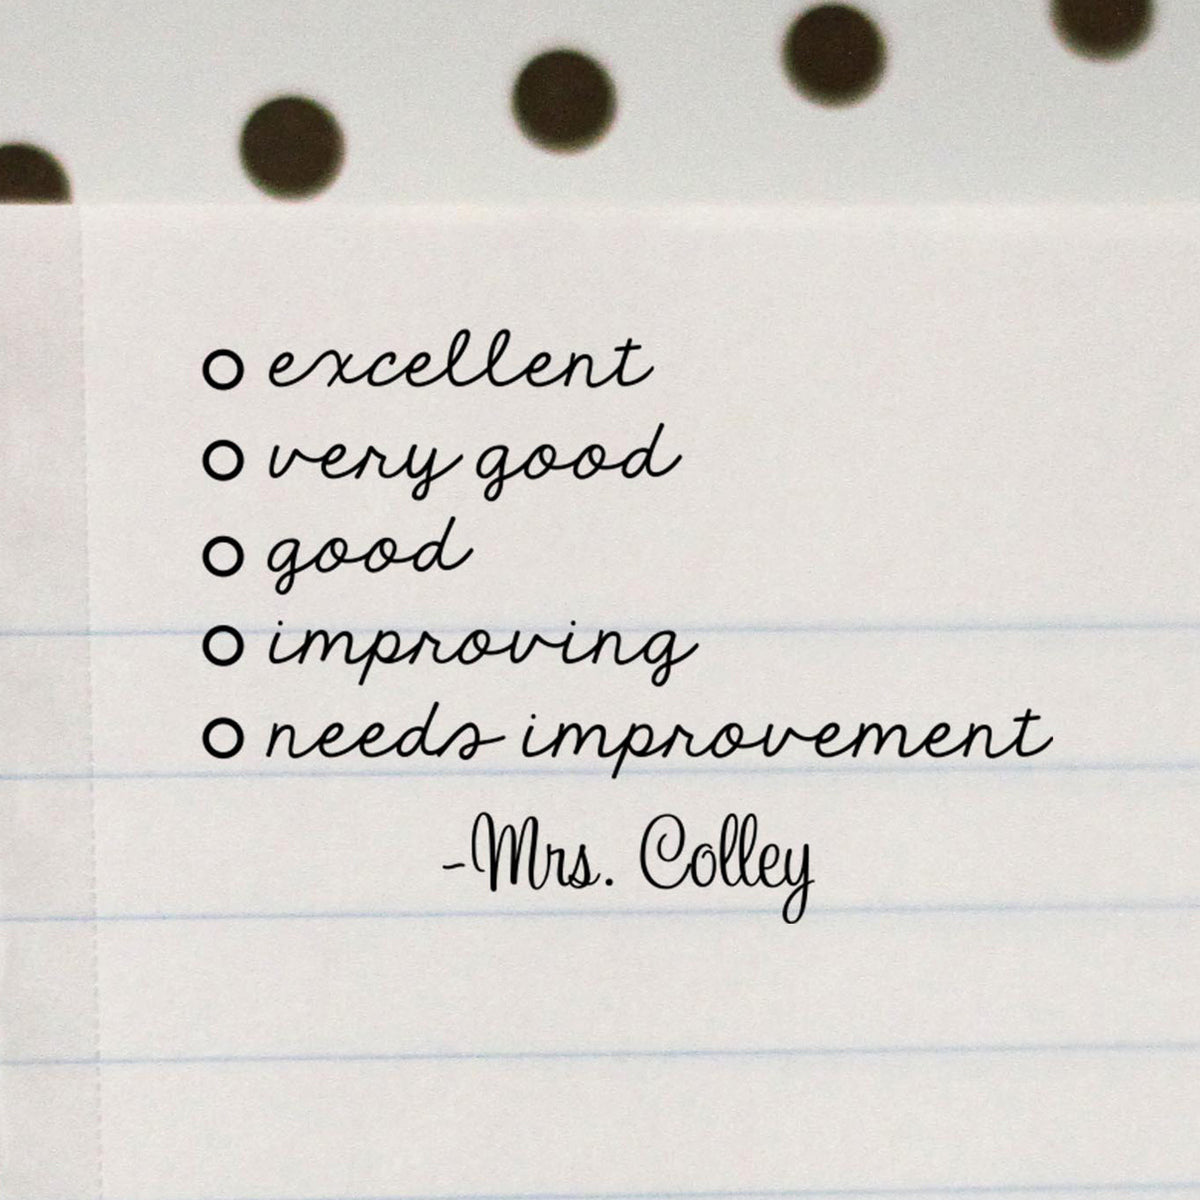 excellent
very good
good
improving
needs improvement
-Mrs. Colley